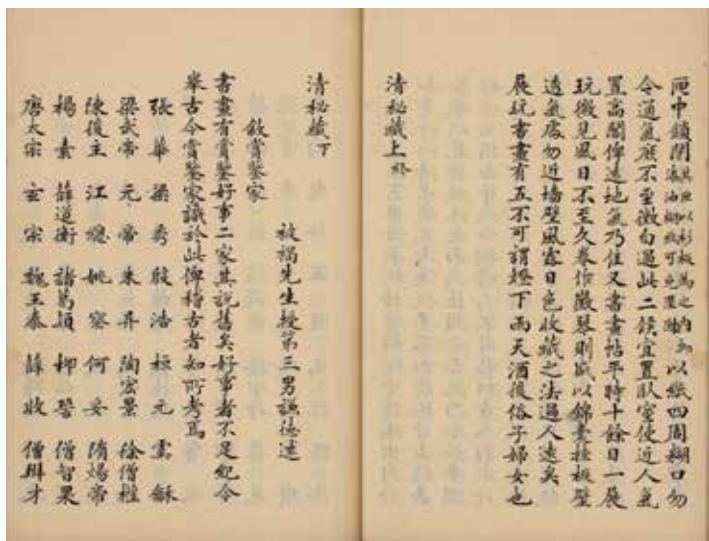 匣中鎖閉其匣以杉板為之內勿漆油糊紙可免黴濕以紙四周糊口勿
令通氣庶不至黴白過此二候宜置臥室使近人氣
置高閣俾遠地氣乃佳又書畫帖平時十餘日一展
玩微見風日不至久卷作黴琴則盛以錦囊挂板壁
透氣處勿近墻壁風露日色收藏之法過人遠矣
展玩書畫有五不可謂燈下雨天酒後俗子婦女也
清秘藏上終
清秘藏下
被褐先生授第三男謙德述
敘賞鑒家
書畫有賞鑒好事二家其說舊矣好事者不足紀今
舉古今賞鑒家識於此俾稽古者知所考焉
張華 梁秀 殷浩 桓元 雲龢
梁武帝 元帝 朱异 陶宏景 徐僧權
陳後主 江總 姚察 何妥 隋煬帝
楊素 薛道衡 諸葛頴 柳䛒 僧智果
唐太宗 玄宗 魏王泰 薛收 僧辯才